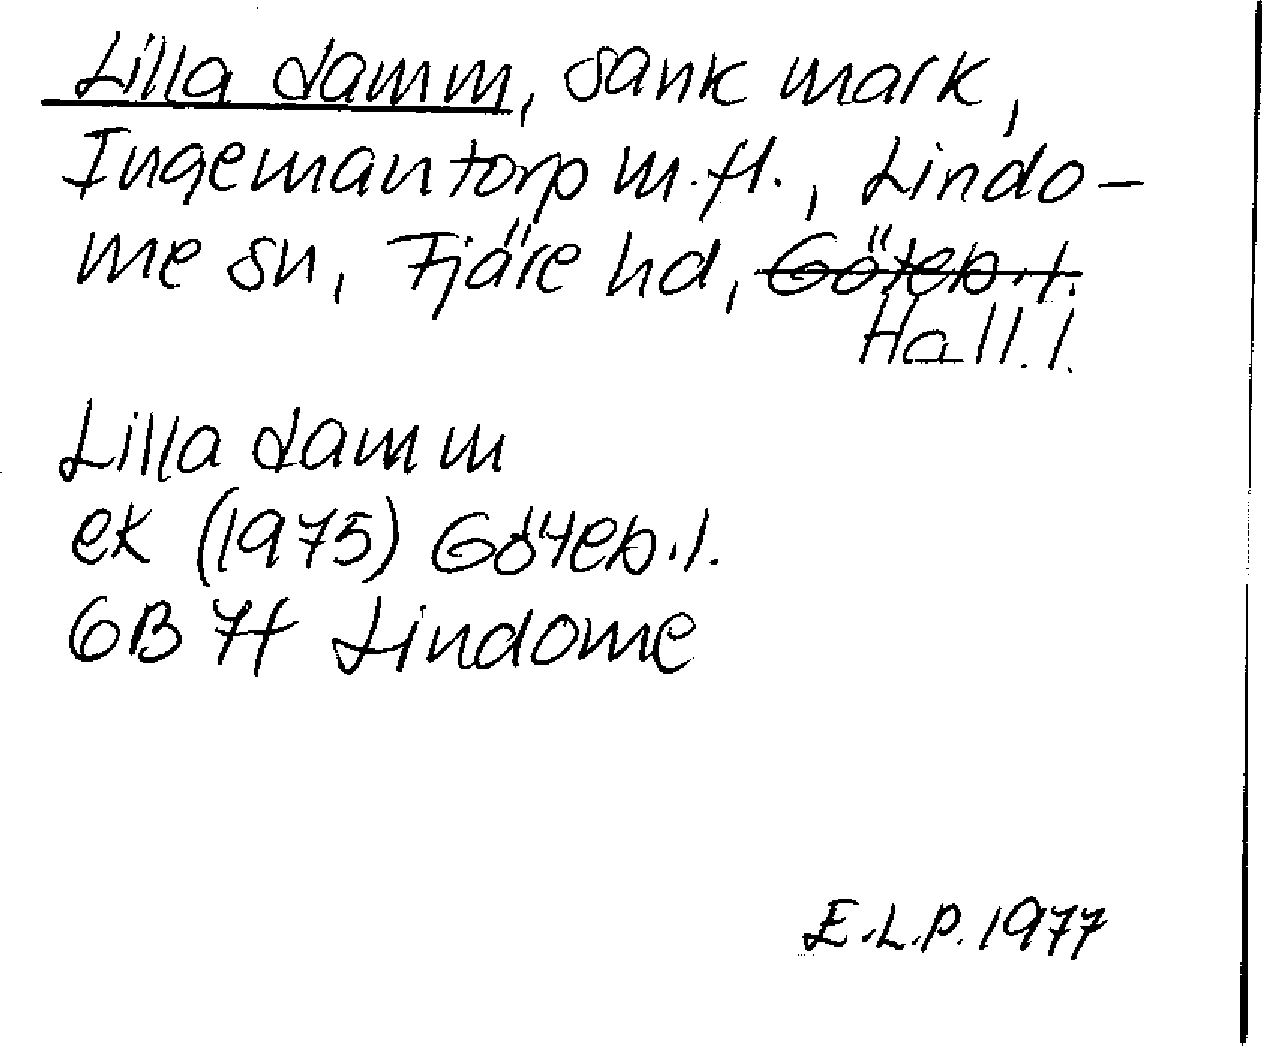 Lilla damm, sank mark,
Ingemantorp m.fl., Lindo-
me sn, Fjäre hd, Göteb.l.
Hall.l.
Lilla damm
ek (1975) Göteb.l.
6B 7f Lindome
E.L.P. 1977